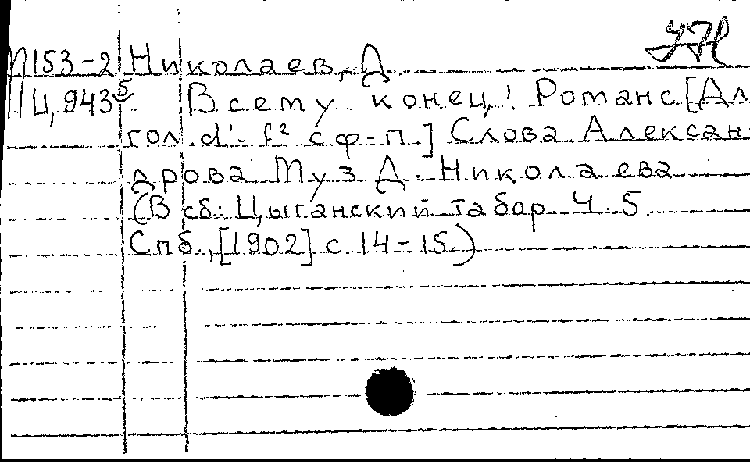 М153-2 Николаев, Д.
Ц,943⁵ Всему конец! Романс [Дл
гол. d'- f² с ф-п.] Слова Алексан
дрова Муз Д. Николаева
(В сб: Цыганский табор Ч. 5
Спб., [1902] с 14-15.)